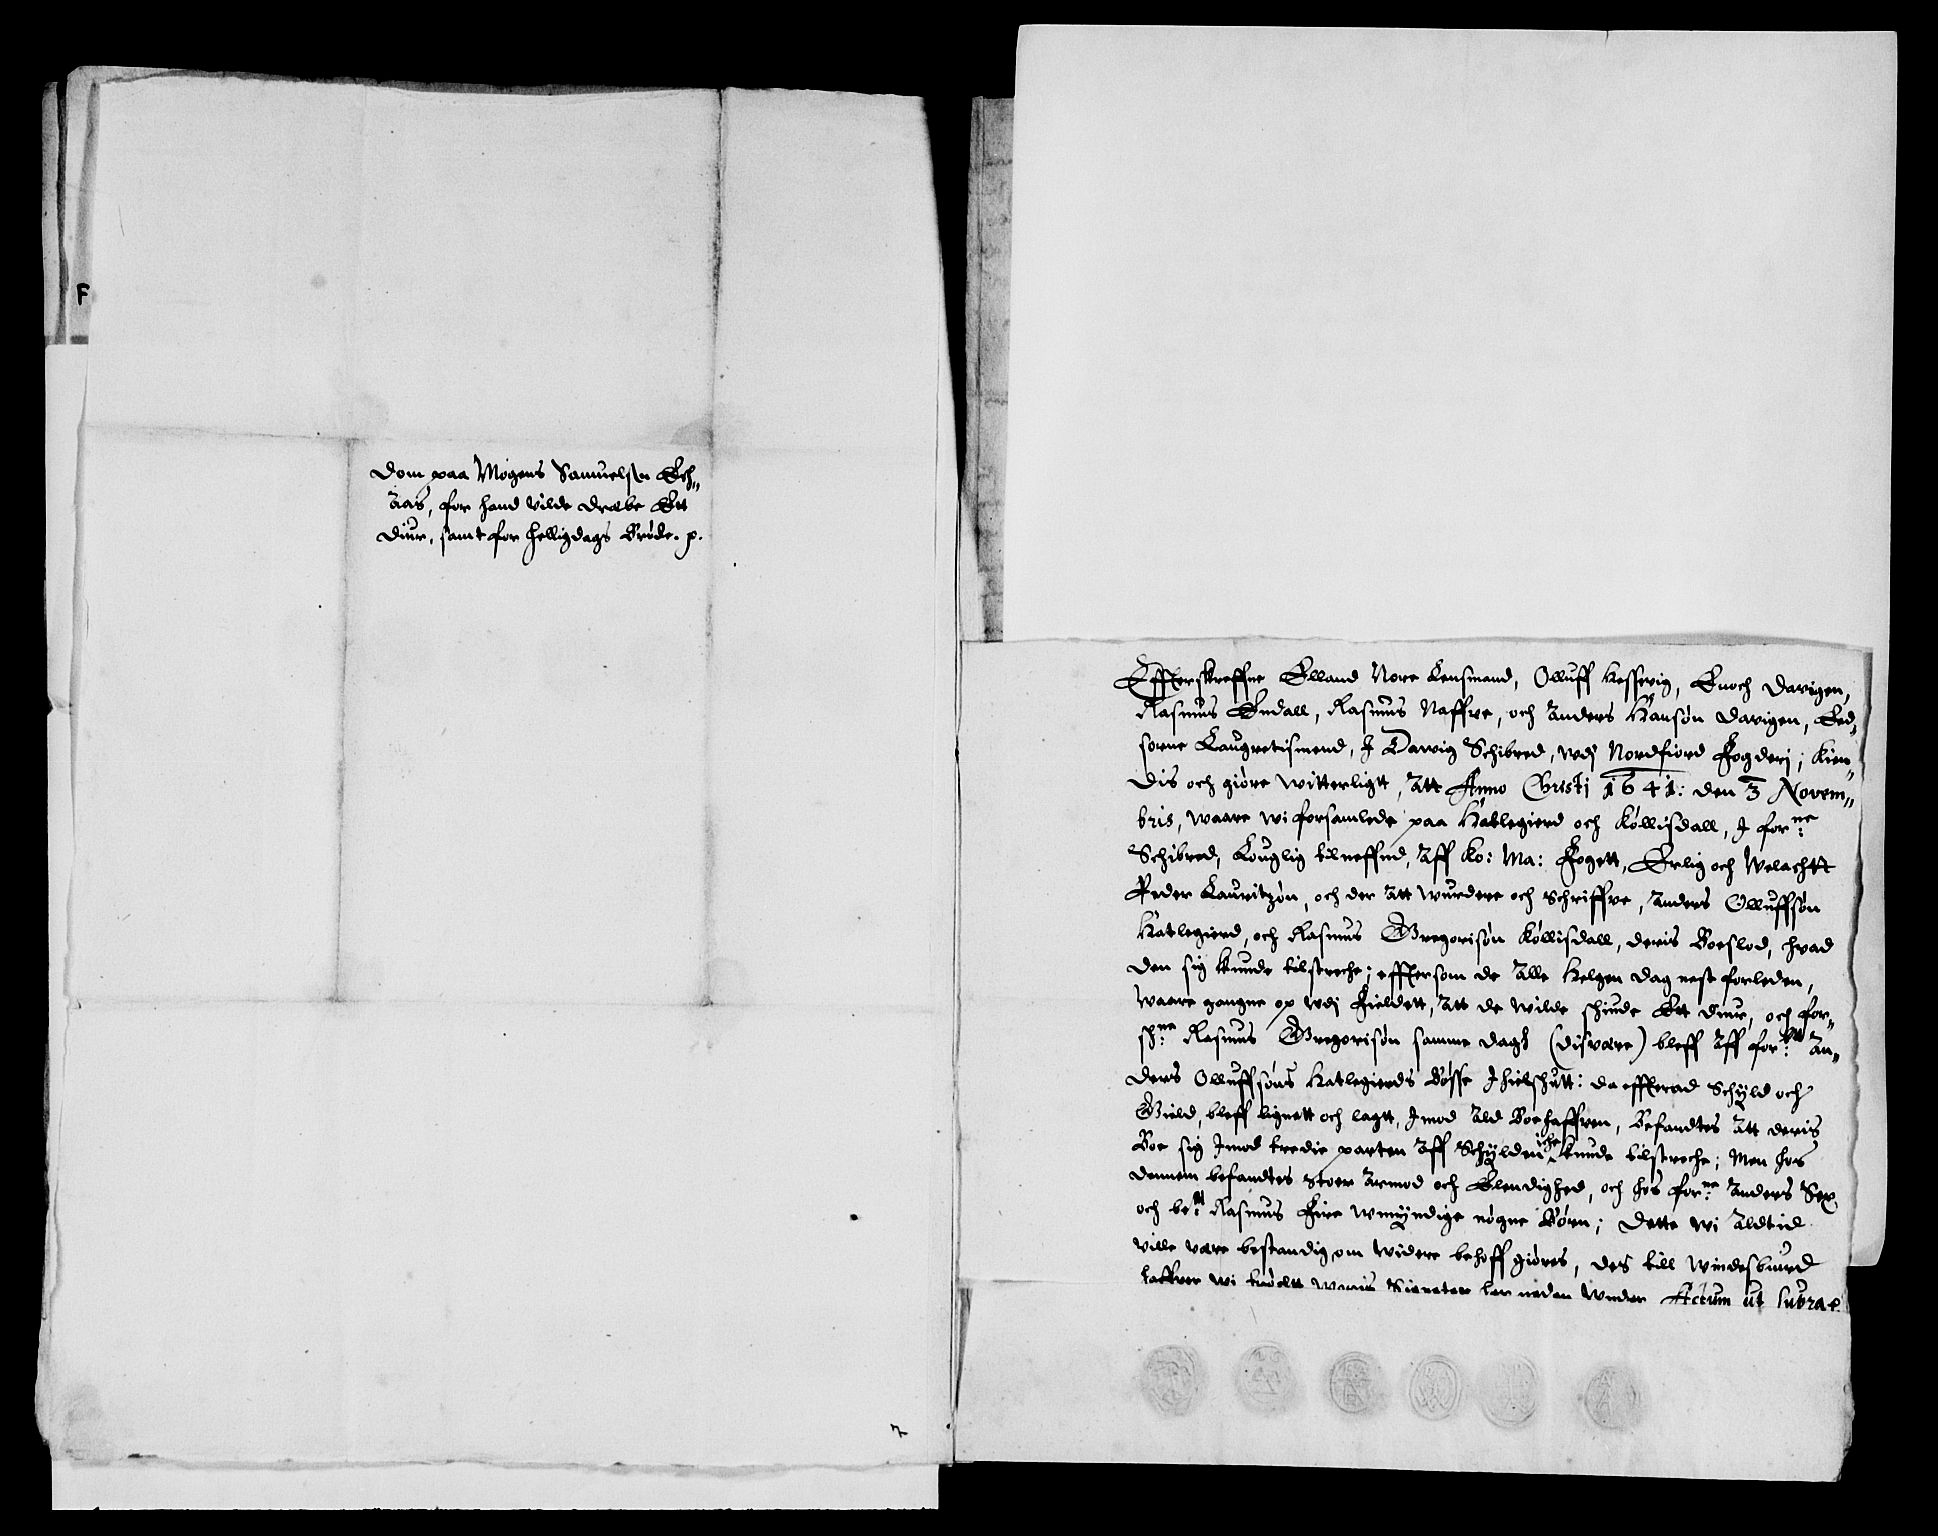 F
Dom paa Mogens Samuelsøn Ech„
Aas, for hand vilde dræbe Ett
diur, samt for helligdags Brøde. p.
Effterskreffne Elland Nore Lensmand, Olluff Hessevig, Enoch Davigen,
Rasmus Endall, Rasmus Naffve, och Anders Hansøn Davigen, Ed„
sorne Laugretismend, I Dawig Schibred, wdj Nordfiord Fogderj; Kien„
dis och giøre witterligtt, Att Anno Christi 1641: den 3 Novem„
bris, waare wi forsamlede paa Hatlegierd och Køllisdall, I for:ne
Schibred, Louglig tilneffnd, Aff Ko: Ma: Fogett, Erlig och Welachtt
Peder Lauritzøn, och der Att wurdere och schriffve, Anders Olluffsøn
Hatlegierd, och Rasmus Gregorisøn Køllisdall, deris Boeslod, hvad
den sig kunde tilstreche; efftersom de Alle Helgen dag nest forleden,
waare gangne op wdj Fieldett, Att de wilde schiude Ett diur, och for„
sp:ne Rasmus Gregorisøn samme dags (disvære) bleff Aff for:ne An„
ders Olluffsøns Hatlegierds Bøsse Ihielschutt: da effterad Schyld och
Gield, bleff lignett och lagtt, Imod Ald Boehaffven, Befandtes Att deris
Boe sig Imod tredie parten Aff Schylden iche kunde tilstreche; Men hos
dennem befandtes stoer Armod och Elendighed, och hos for:ne Anders Sex
och be:te Rasmus Fire wmyndige nøgne Børn; Dette wi Altid
ville være bestandig, om widere behoff giøres, des till Windesbiurd
haffver wi tröctt woris Signeter her neden wnder Actum ut supra